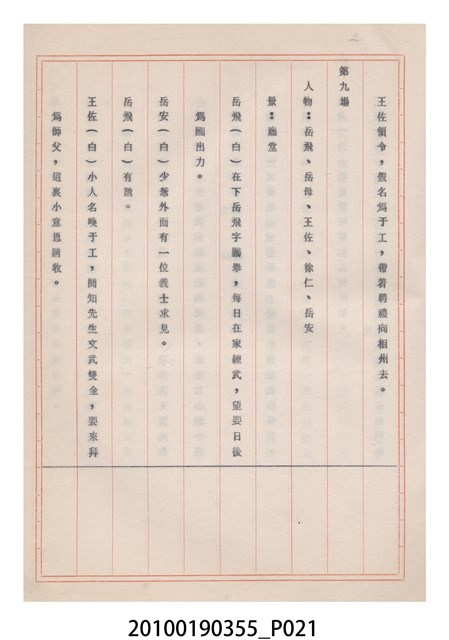 王佐領令，假名爲于工，帶着聘禮向相州去。
第九場
人物：岳飛、岳母、王佐、徐仁、岳安
景：廳堂
岳飛（白）在下岳飛字鵬舉，每日在家練武，望要日後
爲國出力。
岳安（白）少爺外面有一位義士求見。
岳飛（白）有請。
王佐（白）小人名喚于工，聞知先生文武雙全，要來拜
爲師父，這裏小意思請收。
20100190355_P021